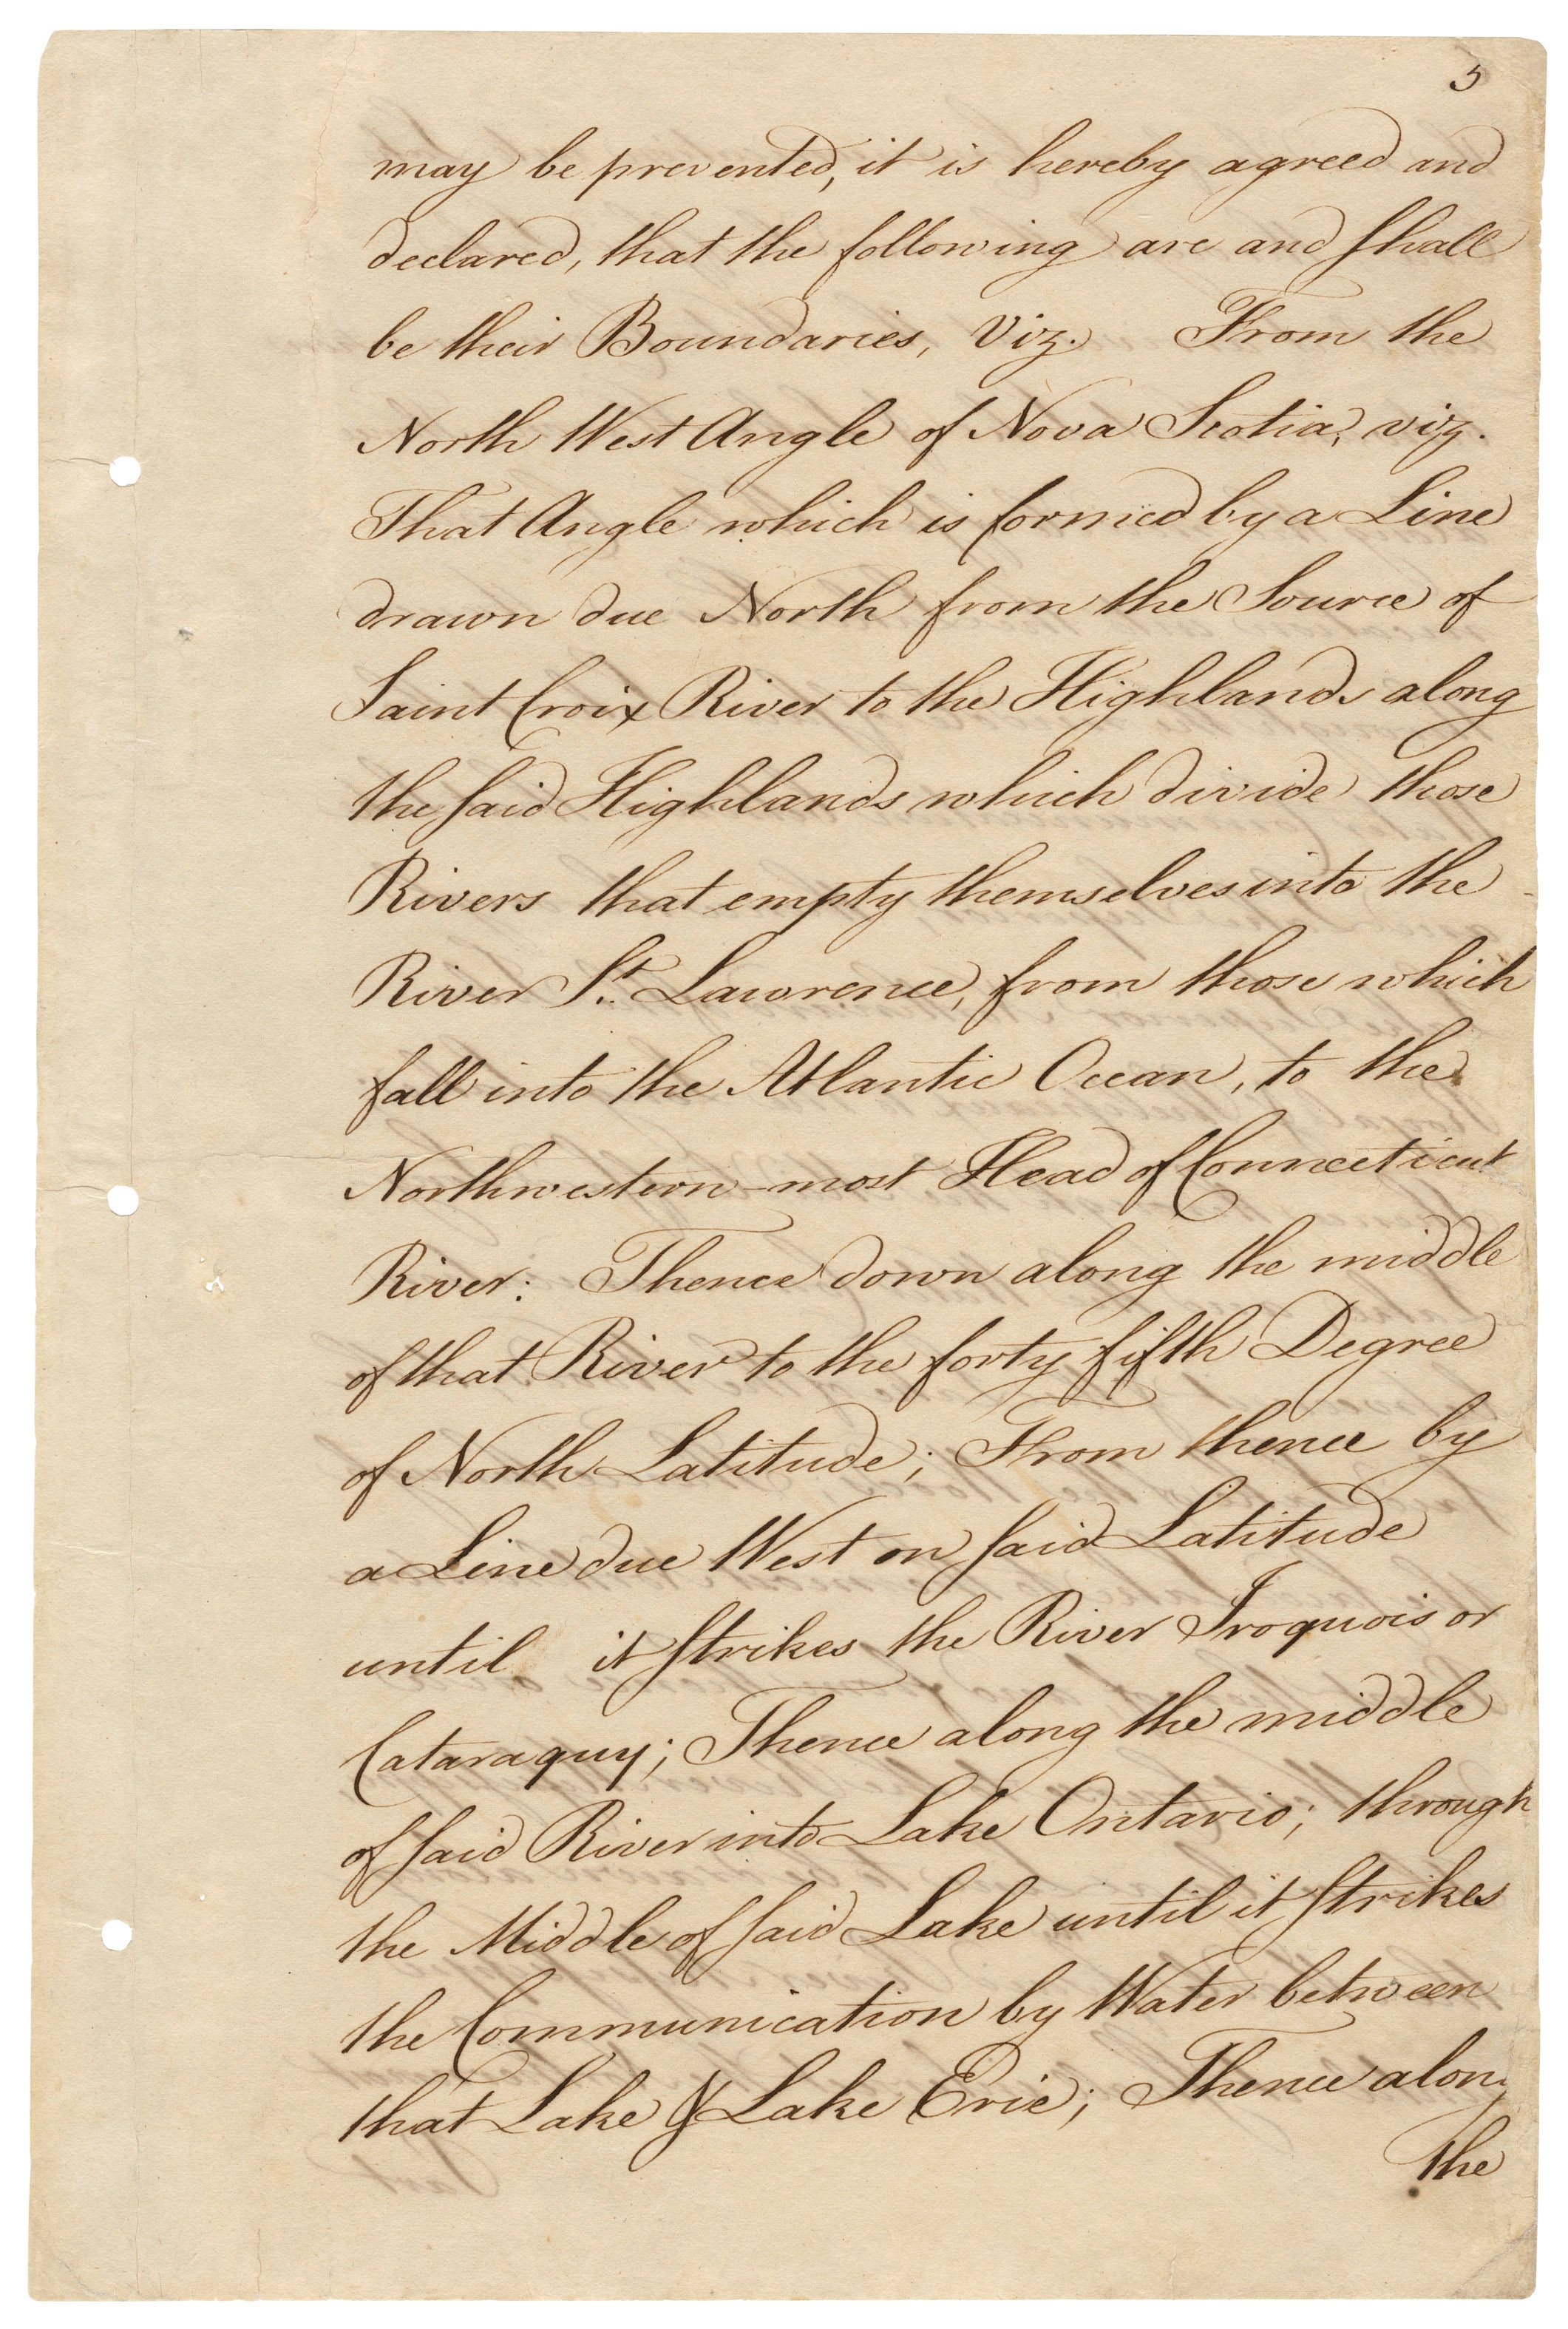 5
may be prevented, it is hereby agreed and
declared, that the following are and shall
be their Boundaries, Viz. From the
North West Angle of Nova Scotia, viz.
That Angle which is formed by a Line
drawn due North from the Source of
Saint Croix River to the Highlands along
the said Highlands which divide those
Rivers that empty themselves into the
River St. Lawrence, from those which
fall into the Atlantic Ocean, to the
Northwestern-most Head of Connecticut
River: Thence down along the middle
of that River to the forty fifth Degree
of North Latitude; From thence by
a Line due West on said Latitude
until it strikes the River Iroquois or
Cataraquy; Thence along the middle
of said River into Lake Ontario; through
the Middle of said Lake until it strikes
the Communication by Water between
that Lake & Lake Erie; Thence along
the